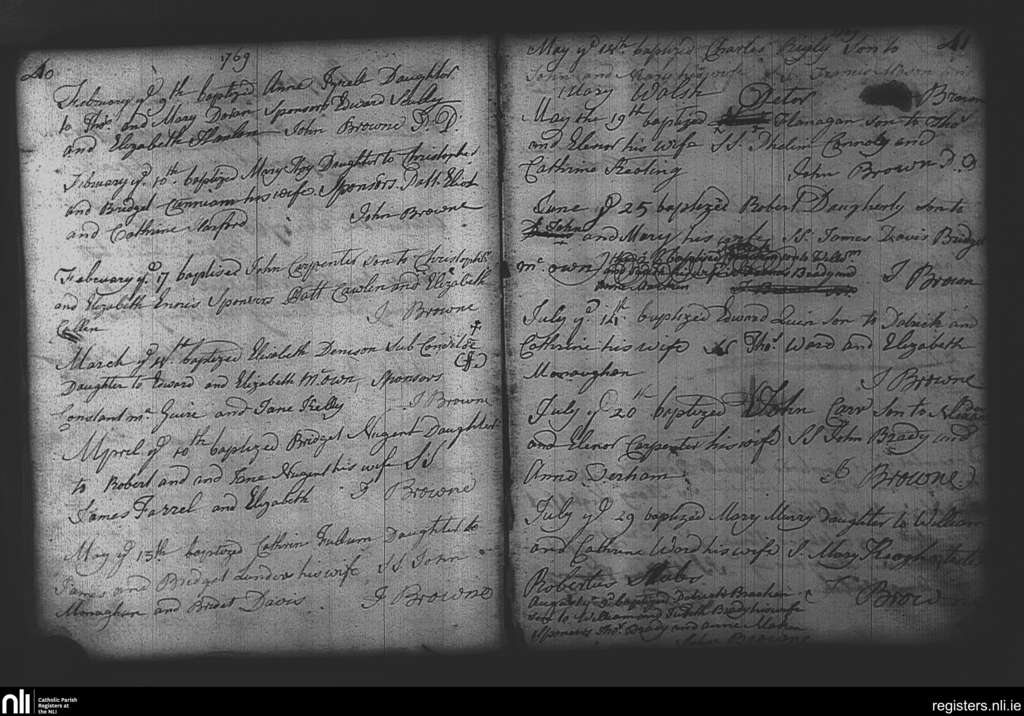 40
1769
February ye 9th baptized Anne Kyrele Daughter
to Thos. and Mary Dolan Sponsors Edward Skelly
and Elizabeth Hanlen John Browne D. D.
February ye 10th baptized Mary Hoy Daughter to Christopher
and Bridget Canneam his wife Sponsors Patt Eliot
and Cathrine Harford John Browne
February ye 7 baptized John Carpenter son to Christopher
and Elizabeth Ennis Sponsors Patt Cawlen and Elizabeth
Callen J Browne
March ye 4th baptized Elizabeth Denison Sub Condi
Daughter to Edward and Elizabeth McOwn, Sponsors
Constant Mc Guire and Jane Kelly J Browne
April ye 10th baptized Bridget Nugent Daughter
to Robert and and Jane Nugent his wife S:S
James Farrel and Elizabeth J Browne
May ye 15th baptized Cathrin Fullum Daughter to
James and Bridget Landers his wife SS John
Monaghan and Bridet Davis. J Browne
41
May ye 14th baptized Charles Rigly Son to
John and Mary his wife Francis
Mary Walsh Peter Brown
May the 19th baptized Flanagan Son to Thos
and Elenor his wife SS. Phelim Connoly and
Cathrine Keoting John Brown D. D
June ye 25 baptized Robert Daugherty Son to
John and Mary his wife SS. James Davis Bridget
Mc Own J Brown
July ye 14th baptized Edward Quin Son to Patrick and
Cathrine his wife SS Thos. Ward and Elizabeth
Monaughan J Browne
July ye 20th baptized John Carr Son to
and Elenor Carpenter his wife SS John Brady and
Anne Derham Browne.
July ye 29 baptized Mary Murry Daughter to William
and Cathrine Word his wife S. Mary
Robertus J Brown
August ye baptized Patrick Bracken
son to William and Judith Brady his wife
Sponsors Thos. Brady and Anne Maken
John Browne
nli
Catholic Parish
Registers at
the NLI
registers.nli.ie